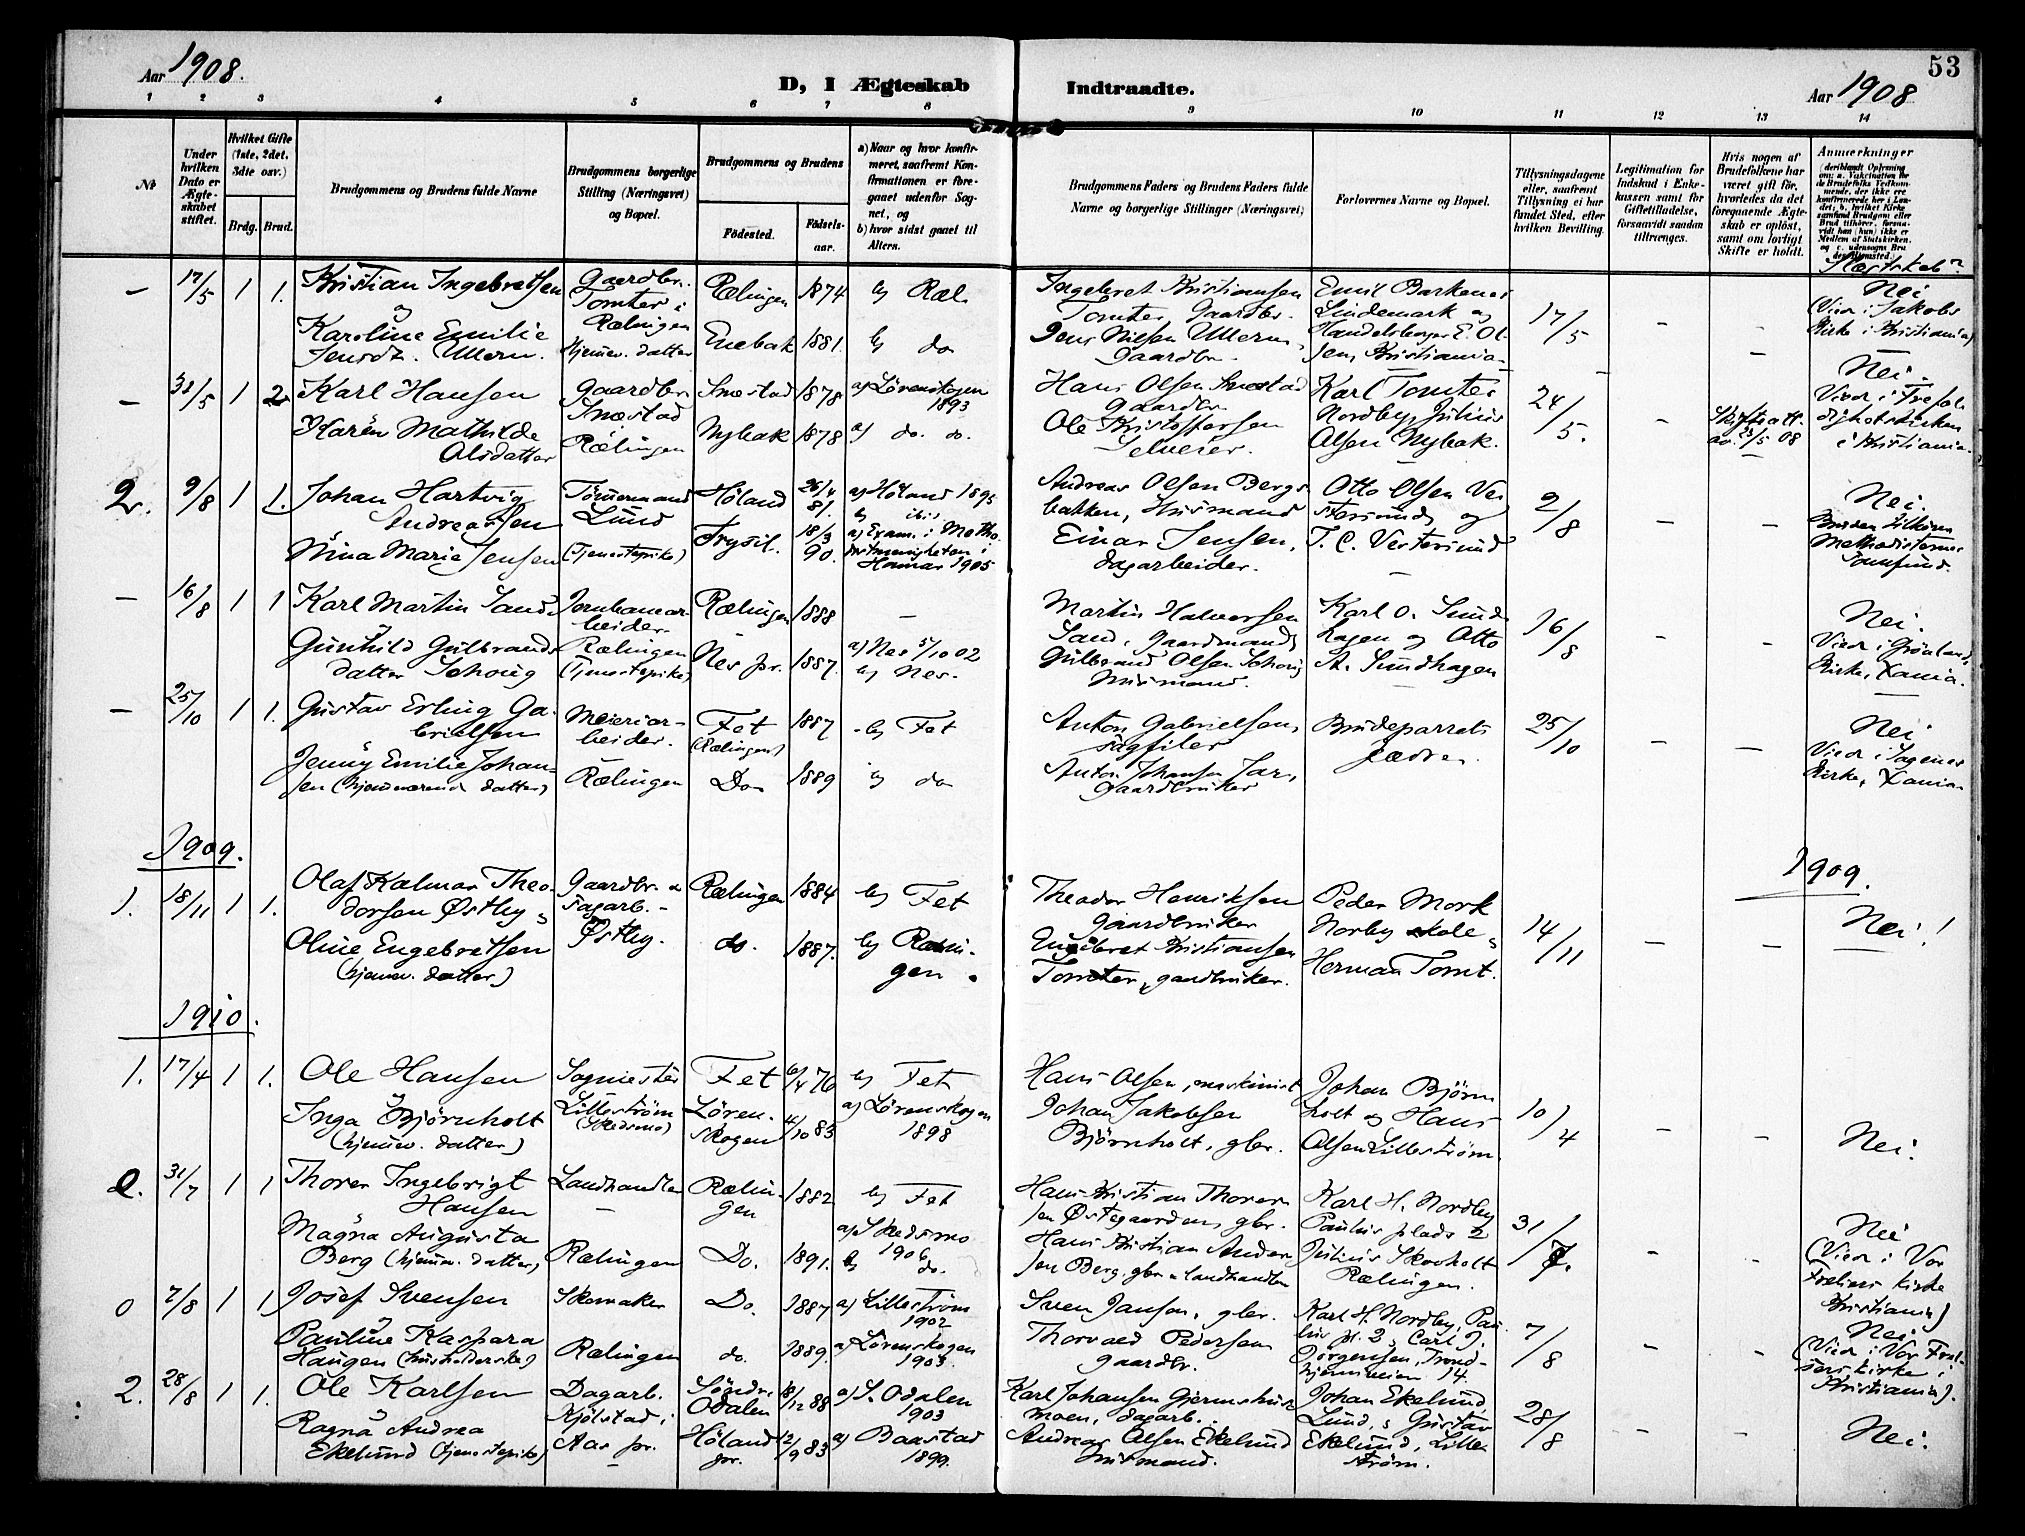 53
Aar 1908.
D, I Ægteskab Indtraadte.
Aar 1908
1 2 3 4 5 6 7 8 9 10 11 12 13 14
No
Under hvilken Dato er Ægteskabet stiftet.
Hvilket Gifte (1ste, 2det, 3die osv.)
Brdg. Brud.
Brudgommens og Brudens fulde Navne
Brudgommens borgerlige Stilling (Næringsvei) og Bopæl.
Brudgommens og Brudens
Födested. Födselsaar.
a) Naar og hvor konfirmeret, saafremt Konfirmationen er foregaaet udenfor Sognet, og
b) hvor sidst gaaet til Alters.
Brudgommens Faders og Brudens Faders fulde Navne og borgerlige Stillinger (Næringsvei)
Forlovernes Navne og Bopæl.
Tillysningsdagene eller, saafremt Tillysning ei har fundet Sted, efter hvilken Bevilling.
Legitimation for Indskud i Enkekassen samt for Giftetilladelse, forsaavidt saadan tiltrænges.
Hvis nogen af Brudefolkene har været gift för, hvorledes da det foregaaende Ægteskab er oplöst, samt om lovligt Skifte er holdt.
Anmerkninger
Slægtskab?
– 17/5 1 1. Kristian Ingebretsen Gaardbr. Tomter i Rælingen Rælingen 1874 b) Ræl.
Ingebret Kristiansen Tomter Gaardbr. Emil Barkenes Lindemark og Handelsborger E. Olsen, Kristiania 17/5 – – Nei Viet i Jakobs Kirke i Kristiania)
& Karoline Emilie Jensdr. Ullern. Hjemmev. datter Enebak 1881. b) do
Jens Nielsen Ullern, Gaardbr.
– 31/5 1 2 Karl Hansen Gaardbr. Snæstad Rælingen Snæstad 1878 a) Lørenskogen 1893
Hans Olsen Snæstad Gaardbr. Karl Tomter Nordby, Julius Olsen Nybak. 24/5. – Skifteatt. av 23/5 08 Nei. Viet i Trefoldighetskirken i Kristiania.
Karen Mathilde Olsdatter Nybak 1878 a) do. do.
Ole Kristoffersen Selveier.
2. 9/8 1 1. Johan Hartvig Andreassen Tömmermand Lund Höland 26/4 81. a) Höland 1895 b) ibid
Andreas Olsen Bergsbakken, Husmand Otto Olsen Vestersund, og T. C. Vestersund 2/8 – – Nei. Bruden tilhörer Methodisternes Samfund.
Nina Marie Jensen (Tjenestepike) Trysil. 18/3 90. a) Exam. i Methodistmenigheten i Hamar 1905
Einar Jensen, dagarbeider.
– 16/8 1 1 Karl Martin Sand Jernbanearbeider Rælingen Rælingen 1888 –
Martin Halvorsen Sand, Gaardmand Karl O. Sundhagen og Otto A. Sundhagen 16/8 – – Nei. Viet i Grönlands Kirke, Xania.
Gunhild Gulbrandsdatter Schoug (Tjenestepike) Nes pr. 1887. a) Nes 5/10 02 b) Nes.
Gulbrand Olsen Schoug Husmand.
– 25/10 1 1. Gustav Erling Gabrielsen Meieriarbeider. Fet (Rælingen) 1887 b) Fet
Anton Gabrielsen, sagfiler Brudeparrets fædre. 25/10 – – Nei Viet i Sagenes Kirke, Xania
Jenny Emilie Johansen (hjemmeværend datter) Rælingen Do 1889 b) do
Anton Johansen Jar, Gaardbruker
1909. 1909.
1. 18/11 1 1. Olaf Kalmar Theodorsen Østby & Gaardbr. & Sagarb. – Østby. Rælingen 1884 b) Fet
Theodor Henriksen gaardbruker Peder Mork Norby skole & Herman Tomt. 14/11 – – Nei!
Oline Engebretsen (hjemmev. datter) do. 1887. b) Rælingen.
Engebret Kristiansen Tomter, gaardbruker.
1910.
1. 17/4 1 1. Ole Hansen Sagmester Lilleström (Skedsmo) Fet 6/4 76 b) Fet
Hans Olsen, maskinist Johan Björnholt og Hans Olsen Lilleström. 10/4 – – Nei.
Inga Björnholt (hjemmev. datter) Lörenskogen 4/10 83 a) Lörenskogen 1898
Johan Jakobsen Björnholt, gbr.
2. 31/7 1 1 Thorer Ingebrigt Hansen Landhandler – Rælingen 1882 b) Fet
Hans Kristian Thorersen Østegaarden, gbr. Karl H. Nordby Paulus plads 2 Julius Skovholt Rælingen. 31/7. – – Nei (Viet i Vor Frelsers kirke Kristiania)
Magna Augusta Berg (hjemmev. datter) Rælingen Do. 1891. a) Skedsmo 1906 b) do.
Hans Kristian Andersen Berg, gbr & landhandler
0 7/8 1 1 Josef Svensen Skomaker Do. 1887 a) Lilleström 1902
Sven Janson, gbr. Karl H. Nordby, Paulus pl. 2, Carl J. Jörgensen, Trondhjemsveien 14. 7/8 – – Nei (Viet i Vor Frelsers kirke, Kristiania).
Pauline Kaspara Haugen (husholderske) Rælingen do. 1889. a) Lörenskogen 1903.
Thorvald Pedersen gaardbr.
2. 28/8 1 1. Ole Karlsen Dagarb. Kjölstad i Aas pr. – Söndr. Odalen 18/12 88 a) S. Odalen 1903
Karl Johansen Gjermshusmoen, dagarb. Johan Ekelund, Lund, & Gustav Ekelund, Lilleström. 28/8 – – Nei.
Ragna Andrea Ekelund (tjenestepike) Höland pr. 12/9 83 a) Baastad 1899.
Andreas Olsen Ekelund husmand.